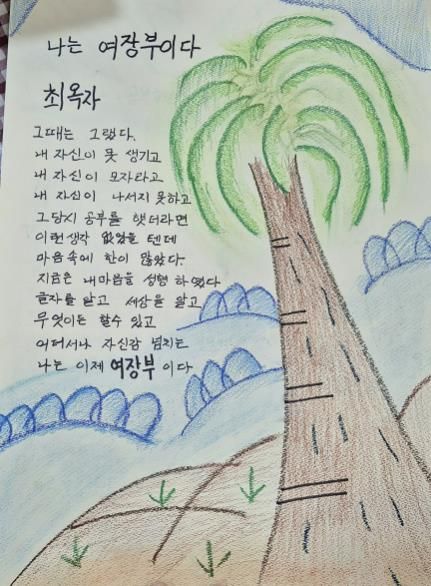 나는 여장부이다
최옥자
그때는 그랬다.
내 자신이 못 생기고
내 자신이 모자라고
내 자신이 나서지 못하고
그당시 공부를 했더라면
이런생각 없었을 텐데
마음속에 한이 많았다.
지금은 내마음을 성형 하였다
글자를 알고 세상을 알고
무엇이든 할수 있고
어더서나 자신감 넘치는
나는 이제 여장부 이다